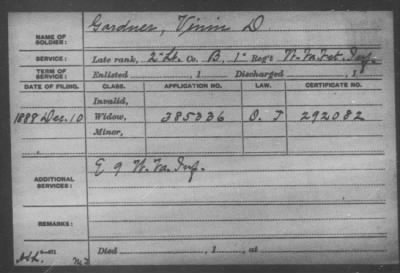 NAME OF SOLDIER: Gardner, Vinin D
SERVICE: Late rank, 2" Lt. Co. B, 1" Reg't W. Va. Vet. Inf.
TERM OF SERVICE: Enlisted , 1 Discharged , 1
DATE OF FILING. CLASS. APPLICATION NO. LAW. CERTIFICATE NO.
Invalid,
1888 Dec. 10 Widow, 385336 O. J 292082
Minor,
ADDITIONAL SERVICES: E 9 W. Va. Inf.
REMARKS:
Died , 1 , at